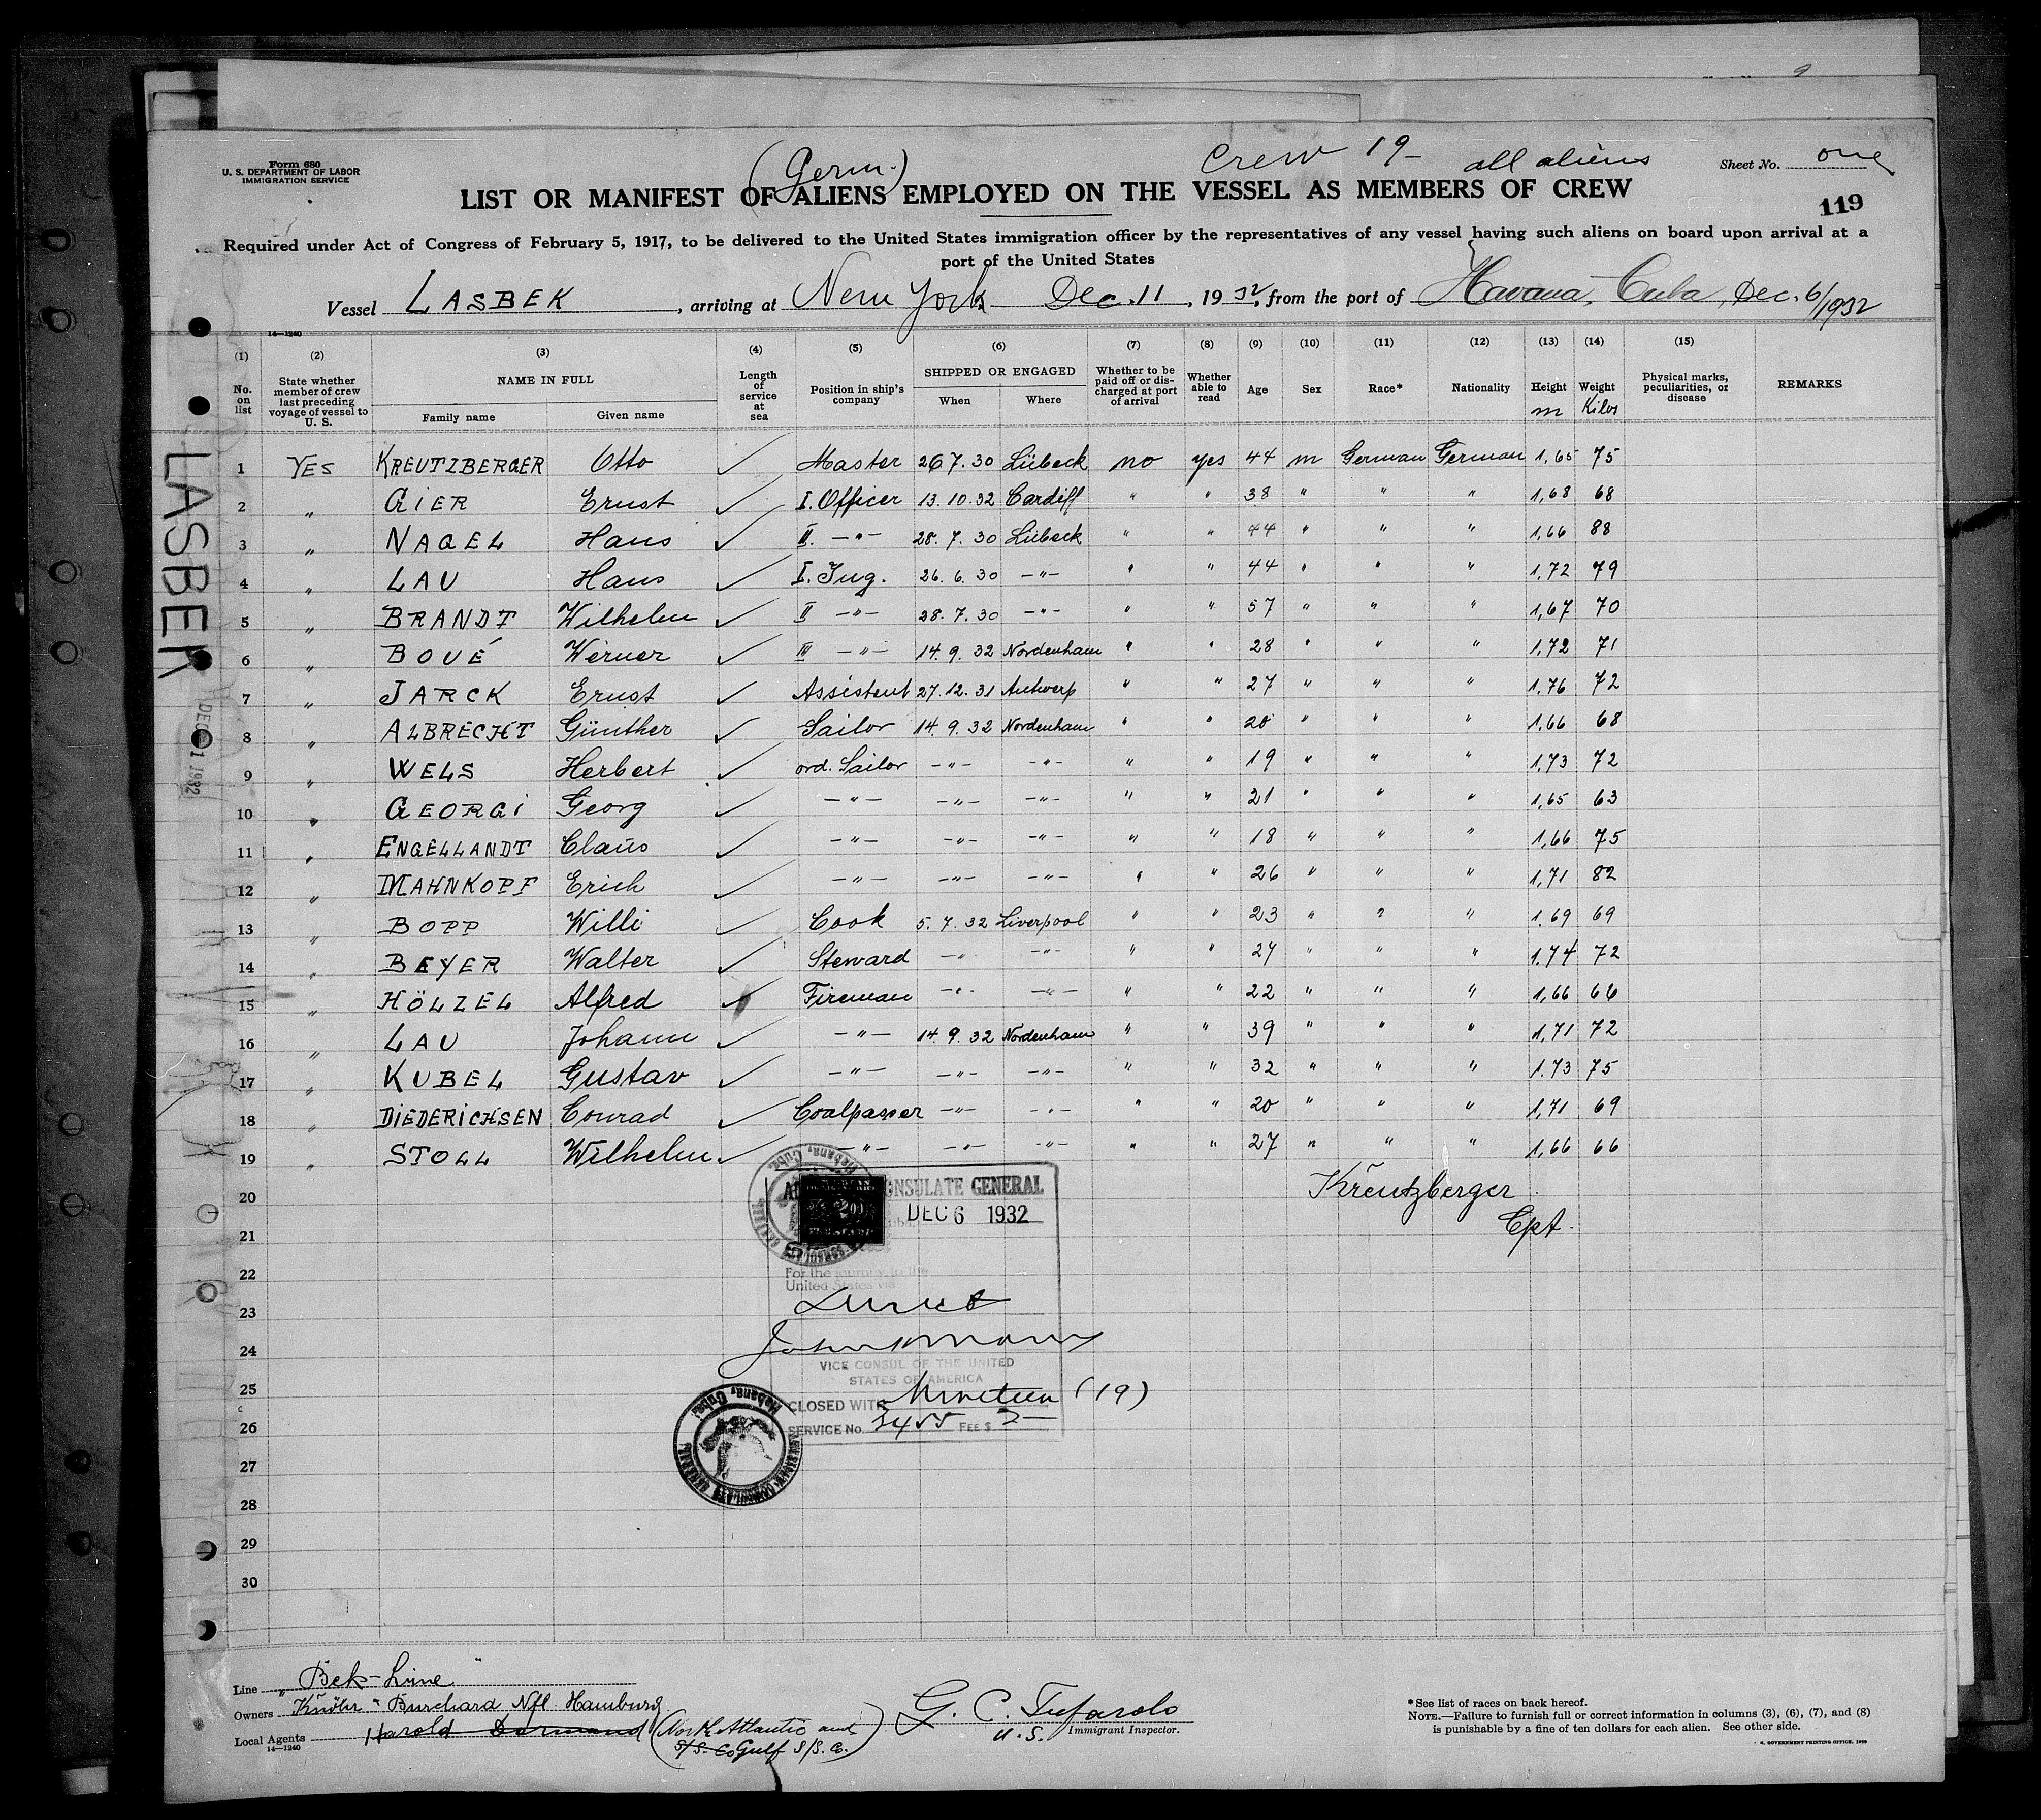 Form 680
U. S. DEPARTMENT OF LABOR
IMMIGRATION SERVICE
(Germ.)
Crew 19- all aliens
Sheet No. one
LIST OR MANIFEST OF ALIENS EMPLOYED ON THE VESSEL AS MEMBERS OF CREW
119
Required under Act of Congress of February 5, 1917, to be delivered to the United States immigration officer by the representatives of any vessel having such aliens on board upon arrival at a
port of the United States
Vessel LASBEK, arriving at New York Dec. 11, 1932, from the port of Havana, Cuba, Dec. 6/1932
14-1240
(1) (2) (3) (4) (5) (6) (7) (8) (9) (10) (11) (12) (13) (14) (15)
No. on list
State whether member of crew last preceding voyage of vessel to U. S.
NAME IN FULL
Family name Given name
Length of service at sea
Position in ship's company
SHIPPED OR ENGAGED
When Where
Whether to be paid off or discharged at port of arrival
Whether able to read
Age
Sex
Race*
Nationality
Height m
Weight Kilos
Physical marks, peculiarities, or disease
REMARKS
1 YES KREUTZBERGER Otto ✓ Master 26 7. 30 Lübeck no yes 44 m German German 1,65 75
2 " GIER Ernst ✓ I. Officer 13. 10. 32 Cardiff " " 38 " " " 1,68 68
3 " NAGEL Hans ✓ II. -"- 28. 7. 30 Lübeck " " 44 " " " 1,66 88
4 " LAU Hans ✓ I. Ing. 26. 6. 30 -"- " " 44 " " " 1,72 79
5 " BRANDT Wilhelm ✓ II -"- 28. 7. 30 -"- " " 57 " " " 1,67 70
6 " BOUÉ Werner ✓ III -"- 14. 9. 32 Nordenham " " 28 " " " 1,72 71
7 " JARCK Ernst ✓ Assistent 27. 12. 31 Antwerp " " 27 " " " 1,76 72
8 " ALBRECHT Günther ✓ Sailor 14. 9. 32 Nordenham " " 20 " " " 1,66 68
9 " WELS Herbert ✓ ord. Sailor -"- -"- " " 19 " " " 1,73 72
10 " GEORGI Georg ✓ -"- -"- -"- " " 21 " " " 1,65 63
11 " ENGELLANDT Claus ✓ -"- -"- -"- " " 18 " " " 1,66 75
12 " MAHNKOPF Erich ✓ -"- -"- -"- " " 26 " " " 1,71 82
13 " BOPP Willi ✓ Cook 5. 7. 32 Liverpool " " 23 " " " 1.69 69
14 " BEYER Walter ✓ Steward -"- -"- " " 24 " " " 1.74 72
15 " HÖLZEL Alfred ✓ Fireman -"- -"- " " 22 " " " 1,66 66
16 " LAU Johann ✓ -"- 14. 9. 32 Nordenham " " 39 " " " 1,71 72
17 " KUBEL Gustav ✓ -"- -"- -"- " " 32 " " " 1.73 75
18 " DIEDERICHSEN Conrad ✓ Coalpasser -"- -"- " " 20 " " " 1,71 69
19 " STOLL Wilhelm ✓ -"- -"- -"- " " 27 " " " 1,66 66
20
Kreutzberger
21
Cpt.
22
23
24
25
26
27
28
29
30
CONSULATE GENERAL
DEC 6 1932
For the journey to the
United States via
VICE CONSUL OF THE UNITED
STATES OF AMERICA
CLOSED WITH Nineteen (19)
SERVICE No. 3455 FEE $ 2-
Habana, Cuba.
LASBEK
DEC 11 1932
Line "Bek-Line"
Owners Knöhr & Burchard Nfl. Hamburg
Local Agents Harold Dormand (North Atlantic and
S/S. Co Gulf S/S. Co.)
14-1240
G. C. Tufarolo
U. S. Immigrant Inspector.
*See list of races on back hereof.
NOTE.—Failure to furnish full or correct information in columns (3), (6), (7), and (8)
is punishable by a fine of ten dollars for each alien. See other side.
GOVERNMENT PRINTING OFFICE, 1929